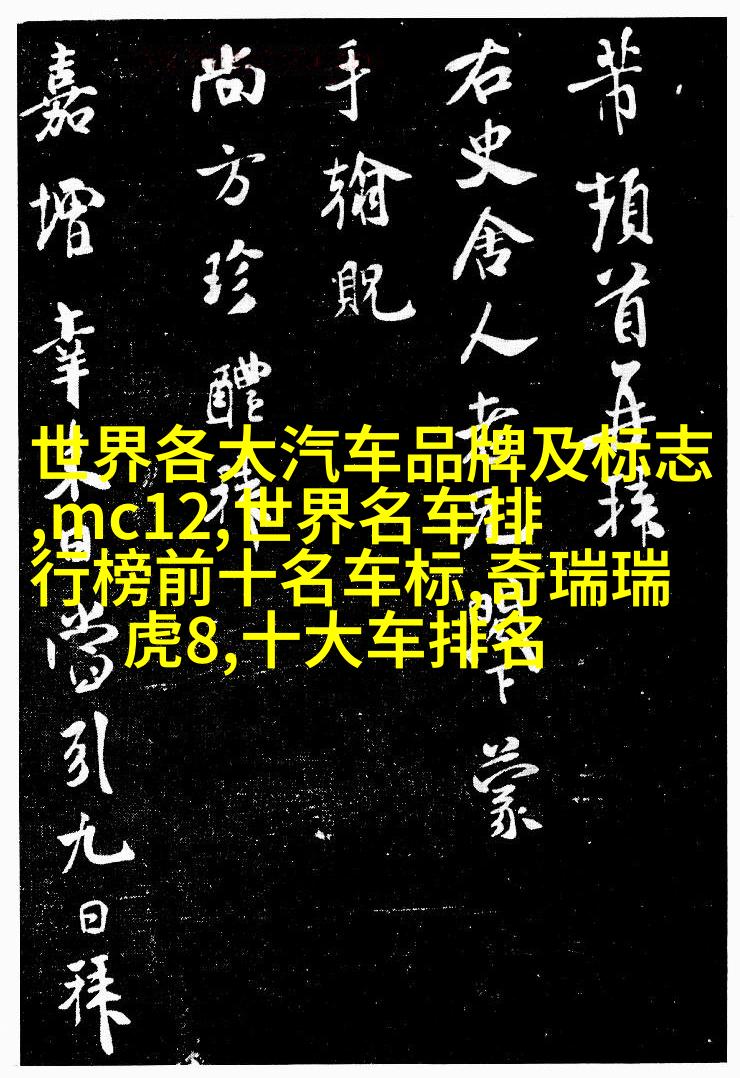 芾頓首再拜
右史舍人老兄閤下蒙
手翰貺
尚方珍醴拜
嘉增幸來日當引九日拜
世界各大汽车品牌及标志
,mc12,世界名车排
行榜前十名车标,奇瑞瑞
虎8,十大车排名